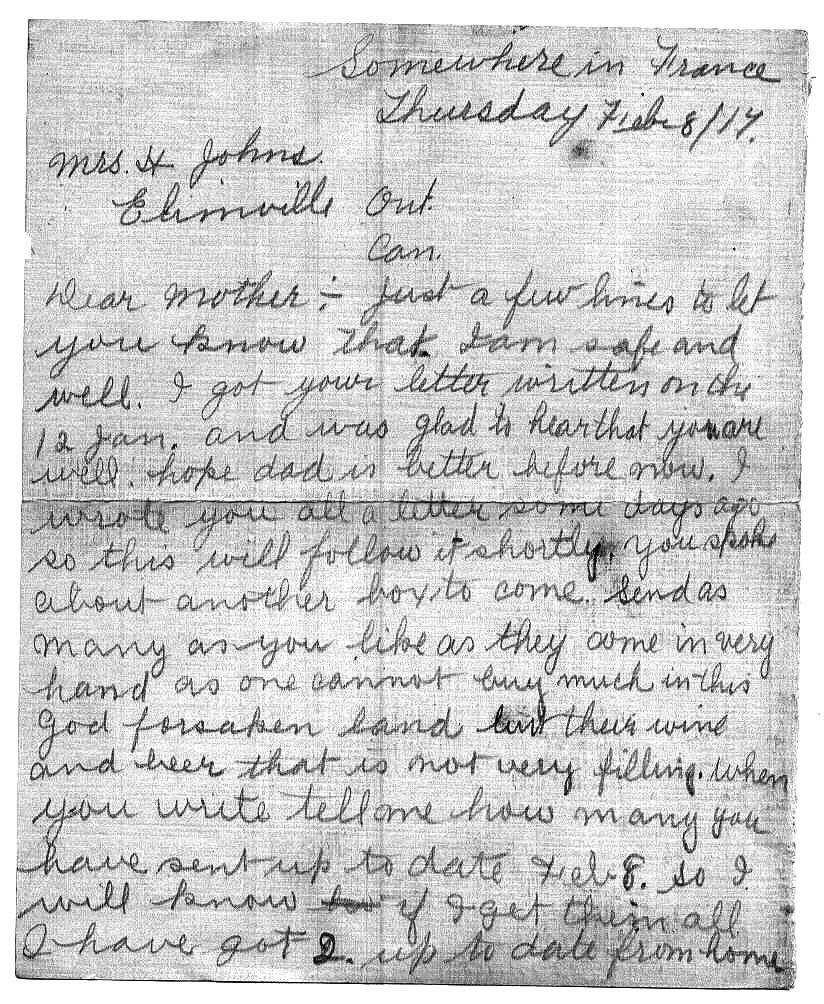 Somewhere in France
Thursday Feb 8/17.
Mrs. H Johns.
Elimville Ont.
Can.
Dear Mother:- Just a few lines to let
you know that I am safe and
well. I got your letter written on the
12 Jan. and was glad to hear that you are
well. hope dad is better before now. I
wrote you all a letter some days ago
so this will follow it shortly. You spoke
about another box to come. Send as
many as you like as they come in very
hand as one cannot buy much in this
God forsaken land but their wine
and beer that is not very filling. When
you write tell me how many you
have sent up to date Feb 8. so I
will know if I get them all
I have got 2. up to date from home